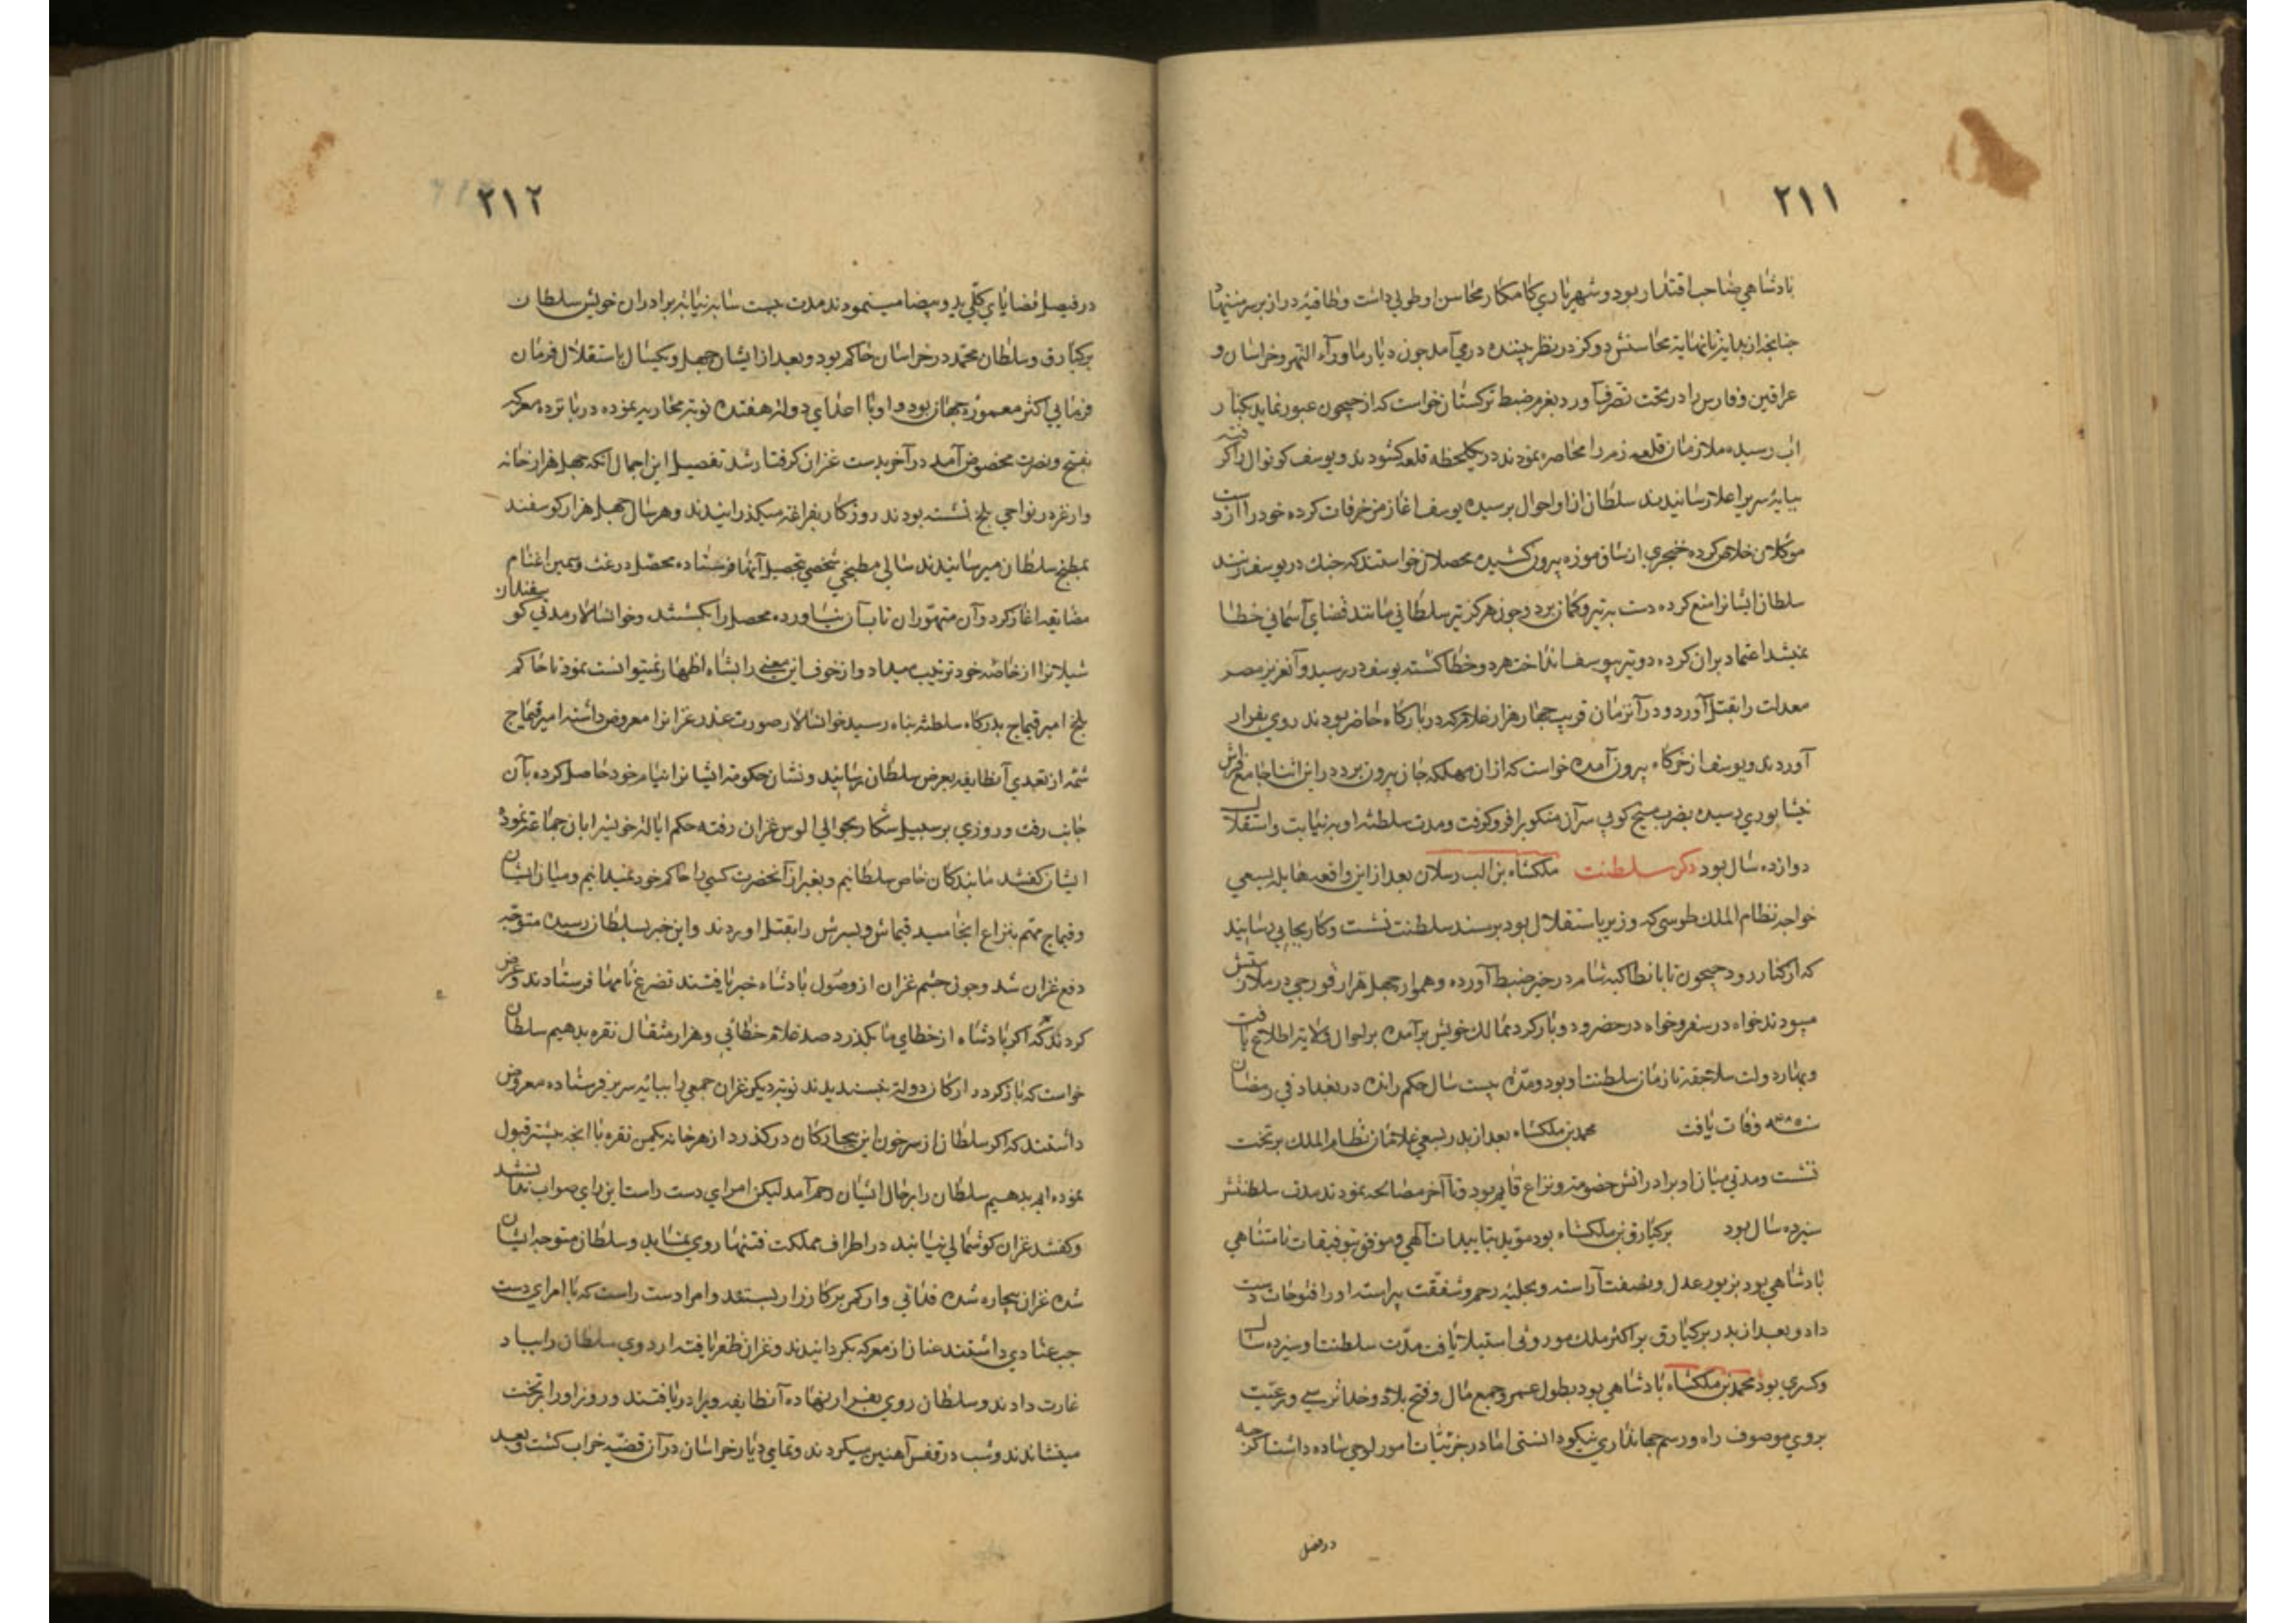 ۲۱۱
بادشاهي صاحب اقتدار بود و شهرياري كامكار محاسن او طولي داشت و طاقيهٔ دراز بر سر مينهاد
چنانچه از نهاية تا نهاية محاسنش دو كز در نظر بيننده درمي آمد چون ديار ماوراء النهر و خراسان و
عراقين و فارس را در تحت تصرف آورد بعزم ضبط تركستان خواست كه از جيحون عبور نمايد بكنار
اب رسيده ملازمان قلعه زم را محاصره نمودند در يكلحظه قلعه كشودند و يوسف كوتوال را كرفته
بپايهٔ سرير اعلا رسانيدند سلطان از او احوال پرسيد يوسف اغاز مزخرفات كرده خود را از دست
موكلان خلاص كرده خنجري از ساق موزه بيرون كشيد محصلان خواستند كه چنك در يوسف زنند
سلطان ايشانرا منع كرده دست به تير و كمان برد و چون هركز تير سلطاني مانند قضاي آسماني خطا
نميشد اعتماد بران كرده دو تير بيوسف انداخت هر دو خطا كشته يوسف در رسيد و آنعزيز مصر
معدلت را بقتل آورد و در آنزمان قريب چهار هزار غلام كه در باركاه حاضر بودند روي بفرار
آوردند و يوسف از خركاه بيرون آمده خواست كه ازان مهلكه جان بيرون برد در اين اثنا جامع فراش
نيشابوري رسيده بضرب ميخ كوبي سر آن منكوب را فرو كوفت و مدت سلطنة او به نيابت و استقلال
دوازده سال بود ذكر سلطنت ملكشاه بن الب رسلان بعد از اين واقعه هايله بسعي
خواجه نظام الملك طوسي كه وزير باستقلال بود بر مسند سلطنت نشست و كار بجايي رسانيد
كه از كنار رود جيحون تا بانطاكيه شام در حيز ضبط آورده و هموار چهل هزار قورچي در ملازمتش
ميبودند خواه در سفر و خواه در حضر و دو بار كرد ممالك خويش برآمده بر احوال ولايت اطلاع يافت
و بهار دولت سلاجقه تا زمان سلطنت او بود و مدة بيست سال حكم رانده در بغداد في رمضان
سنه ۴۸۵ وفات يافت محمد بن ملكشاه بعد از پدر بسعي غلامان نظام الملك بر تخت
نشست و مدتي ميان او و برادرانش خصومة و نزاع قايم بود و تا آخر مصالحه نمودند مدت سلطنتش
سيزده سال بود بركيارق بن ملكشاه بود مويد بتاييدات آلهي و موفق بتوفيقات نامتناهي
بادشاهي بود بزيور عدل و نصفت آراسته و بحليهٔ رحم و شفقت پيراسته او را فتوحات دست
داد و بعد از پدر بركيارق بر اكثر ملك موروثي استيلا يافت مدت سلطنت او سيزده سال
و كسري بود محمد بن ملكشاه بادشاهي بود بطول عمر و جمع مال و فتح بلاد و خداترسي و رعيت
پروري موصوف راه و رسم جهانداري نيكو دانستي اما در جزئيات امور لوحي ساده داشت اكر چه
در فصل
۲۱۲
در فيصل قضاياي كلي يد و بيضا مينمودند مدت بيست سال به نيابة برادران خويش سلطان
بركيارق و سلطان محمد در خراسان حاكم بود و بعد از ايشان چهل و يكسال باستقلال فرمان
فرمايي اكثر معمورهٔ جهان بود و او با اعداي دولة هفده نوبة محاربه نموده در پانزده معركه
بفتح و نصرت مخصوص آمد در آخر بدست غزان كرفتار شد تفصيل اين اجمال آنكه چهل هزار خانه
وار غز در نواحي بلخ نشسته بودند روزكار بفراغة ميكذرانيدند و هر سال چهل هزار كوسفند
بمطبخ سلطان ميرسانيدند سالي مطبخي شخصي بتحصيل آنها فرستاده محصل در غث و سمين اغنام
مضايقه اغاز كرد و آن متهوران تاب آن نياورده محصل را بكشتند و خوانسالار مدتي كوسفندان
شيلانرا از خاصه خود ترتيب ميداد و از خوف اين معني را بشاه اظهار نميتوانست نمود تا حاكم
بلخ امير قيماج بدركاه سلطنة پناه رسيد خوانسالار صورت عذر غزانرا معروض داشته امير قيماج
شمه از تعدي آنطايفه بعرض سلطان رسانيد و نشان حكومة ايشانرا بنام خود حاصل كرده بآن
جانب رفت و روزي بر سبيل شكار بحوالي الوس غزان رفته حكم ايالة خويش را بان جماعة نمود
ايشان كفتند ما بندكان خاص سلطانيم و بغير از آنحضرت كسي را حاكم خود نميدانيم و ميان ايشان
و قيماج مهم بنزاع انجاميد قيماش و پسرش را بقتل اوردند و اين خبر بسلطان رسيده متوجه
دفع غزان شد و چون چشم غزان از وصول بادشاه خبر يافتند تضرع نامها فرستادند و عرض
كردند كه اكر بادشاه از خطاي ما بكذرد صد غلام خطائي و هزار مثقال نقره بدهيم سلطان
خواست كه بازكردد اركان دولة نپسنديدند نوبة ديكر غزان جمعي را بپايه سرير فرستاده معروض
داشتند كه اكر سلطان از سر خون اين بيچاركان دركذرد از هر خانه يكمن نقره با انچه پيشتر قبول
نموده ايم بدهيم سلطان را بر حال ايشان رحم آمد ليكن امراي دست راست اين راي صواب ندانستند
و كفتند غزان كوشمالي نيابند در اطراف مملكت فتنها روي نمايد و سلطان متوجه ايشان
شده غزان بيچاره شده فدائي وار كمر بر كارزار بستند و امرا دست راست كه با امراي دست
چپ عنادي داشتند عنان از معركه بكردانيدند و غزان ظفر يافته اردوي سلطان را بباد
غارت دادند و سلطان روي بفرار نهاده آنطايفه ويرا دريافتند و روز او را بر تخت
مينشاندند و شب در قفس آهنين ميكردند و تمامي ديار خراسان در آن قضيه خراب كشت و بعد